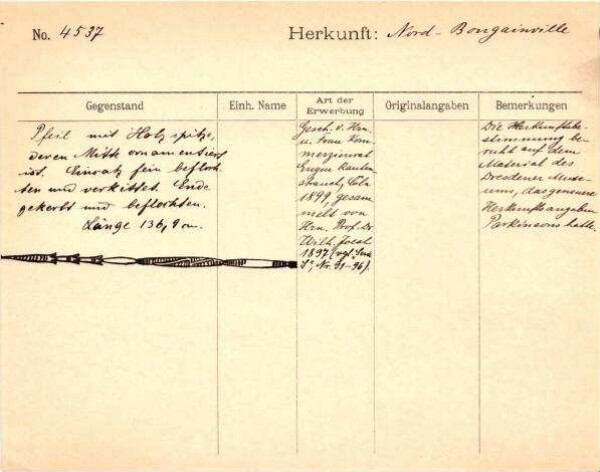 No. 4537
Herkunft: Nord-Bougainville
Gegenstand
Einh. Name
Art der Erwerbung
Originalangaben
Bemerkungen
Pfeil mit Holzspitze,
deren Mitte ornamentiert
ist. Einsatz fein befloch-
ten und verkittet. Ende
gekerbt und beflochten.
Länge 136,9 cm.
Gesch. v. Hrn.
u. Frau Kom-
merzienrat
Eugen Rauten-
strauch, Cöln
1899, gesam-
melt von
Hrn. Prof. Dr.
Wilh. Joest
1897 (vgl.
Nr. 91-96).
Die Herkunftsbe-
stimmung be-
ruht auf dem
Material des
Dresdener Muse-
ums, das genaue
Herkunftsangaben
Parkinsons hatte.